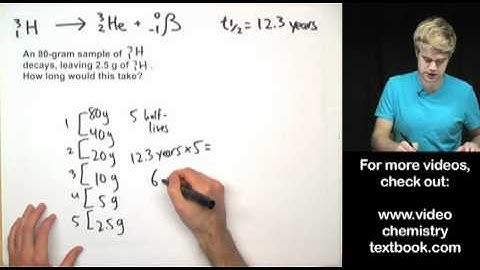 ³₁H → ³₂He + ⁰₋₁β t½ = 12.3 years
An 80-gram sample of ³₁H
decays, leaving 2.5 g of ³₁H.
How long would this take?
1 [ 80g 5 half-
40g lives
2 [ 20g 12.3 years × 5 =
3 [ 10g 6
4 [ 5g
5 [ 2.5g
For more videos,
check out:
www.video
chemistry
textbook.com